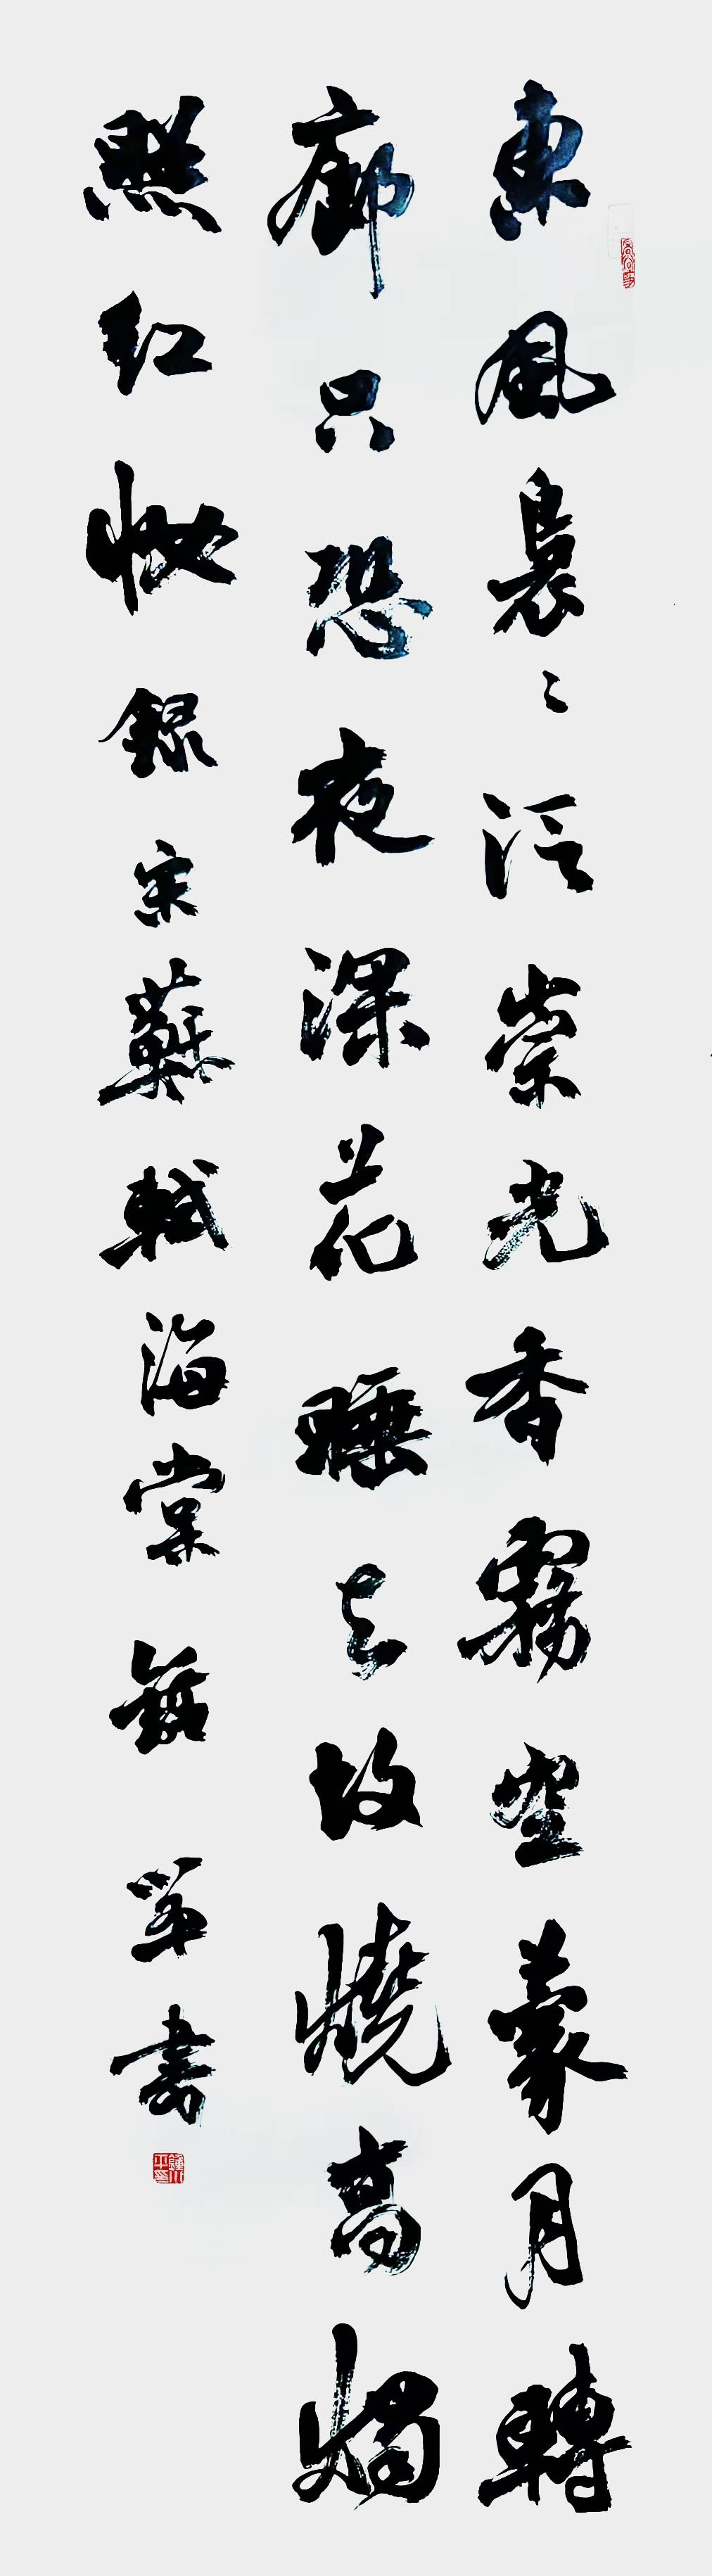 東風裊〻泛崇光香霧空蒙月轉
廊只恐夜深花睡去故燒高燭
照紅妝錄宋蘇軾海棠平書